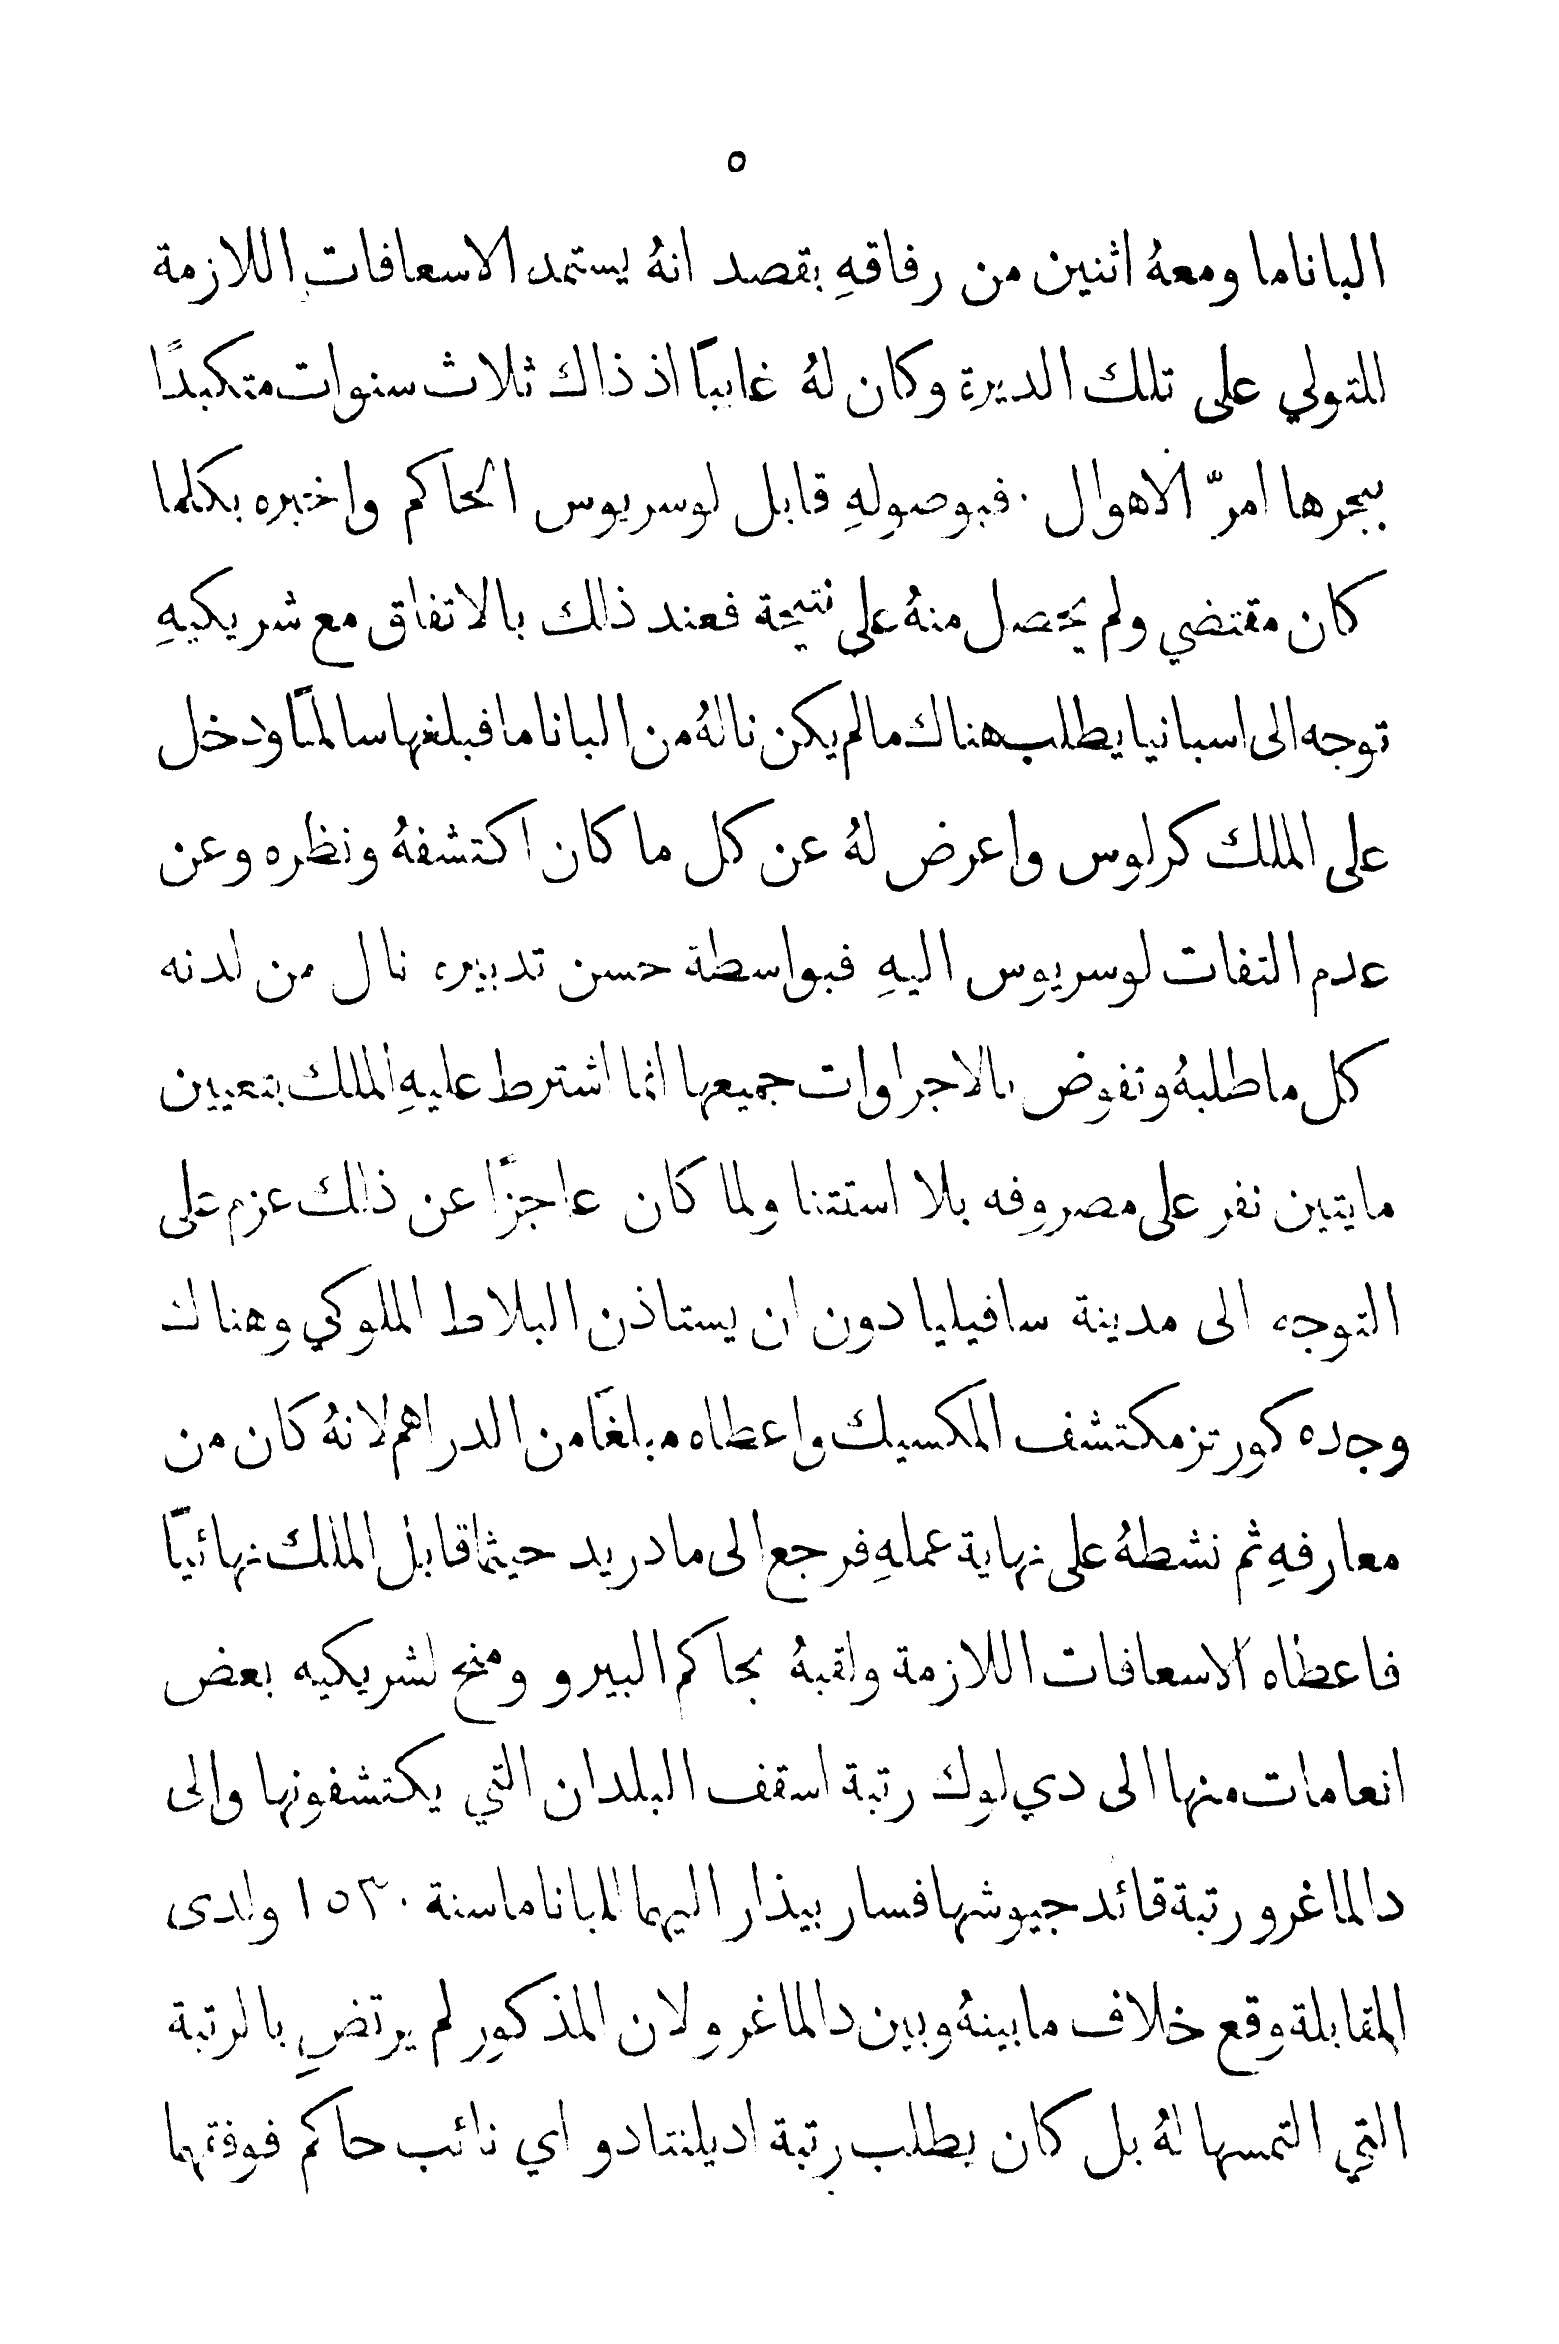 ٥
الباناما ومعهُ اثنين من رفاقهِ بقصد انهُ يستمد الاسعافات اللازمة
للتولي على تلك الديرة وكان لهُ غايبًا اذ ذاك ثلاث سنوات متكبدًا
ببجرها امرّ الاهوال . فبوصولهِ قابل لوسريوس الحاكم واختبره بكلما
كان مقتضي ولم يحصل منهُ على نتيجة فعند ذلك بالاتفاق مع شريكيهِ
توجه الى اسبانيا يطلب هناك ما لم يكن نالهُ من الباناما فبلغها سالمًا ودخل
على الملك كرلوس واعرض لهُ عن كل ما كان اكتشفهُ ونظره وعن
عدم التفات لوسريوس اليهِ فبواسطة حسن تدبيره نال من لدنه
كل ما طلبهُ وتفوض بالاجراوات جميعها انما اشترط عليهِ الملك بتعيين
مايتين نفر على مصروفه بلا استتنا ولما كان عاجزًا عن ذلك عزم على
التوجه الى مدينة سافيليا دون ان يستاذن البلاط الملوكي وهناك
وجده كورتز مكتشف المكسيك واعطاه مبلغًا من الدراهم لانهُ كان من
معارفهِ ثم نشطهُ على نهاية عملهِ فرجع الى مادريد حيثما قابل الملك نهائيًا
فاعطاه الاسعافات اللازمة ولقبهُ بحاكم البيرو ومنح لشريكيه بعض
انعامات منها الى دي لوك رتبة اسقف البلدان التي يكتشفونها والى
دالماغرو رتبة قائد جيوشها فسار بيذار اليهما للباناما سنة ١٥٣٠ ولدى
المقابلة وقع خلاف ما بينهُ وبين دالماغرو لان المذكور لم يرتضِ بالرتبة
التي التمسها لهُ بل كان يطلب رتبة اديلنتادو اي نائب حاكم فوفقهما